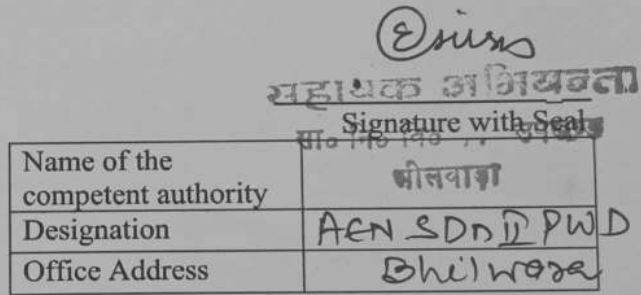 सहायक अभियन्ता
Signature with Seal
सा० नि० वि०
Name of the
competent authority
भीलवाड़ा
Designation
AEN SDn II PWD
Office Address
Bhilwara